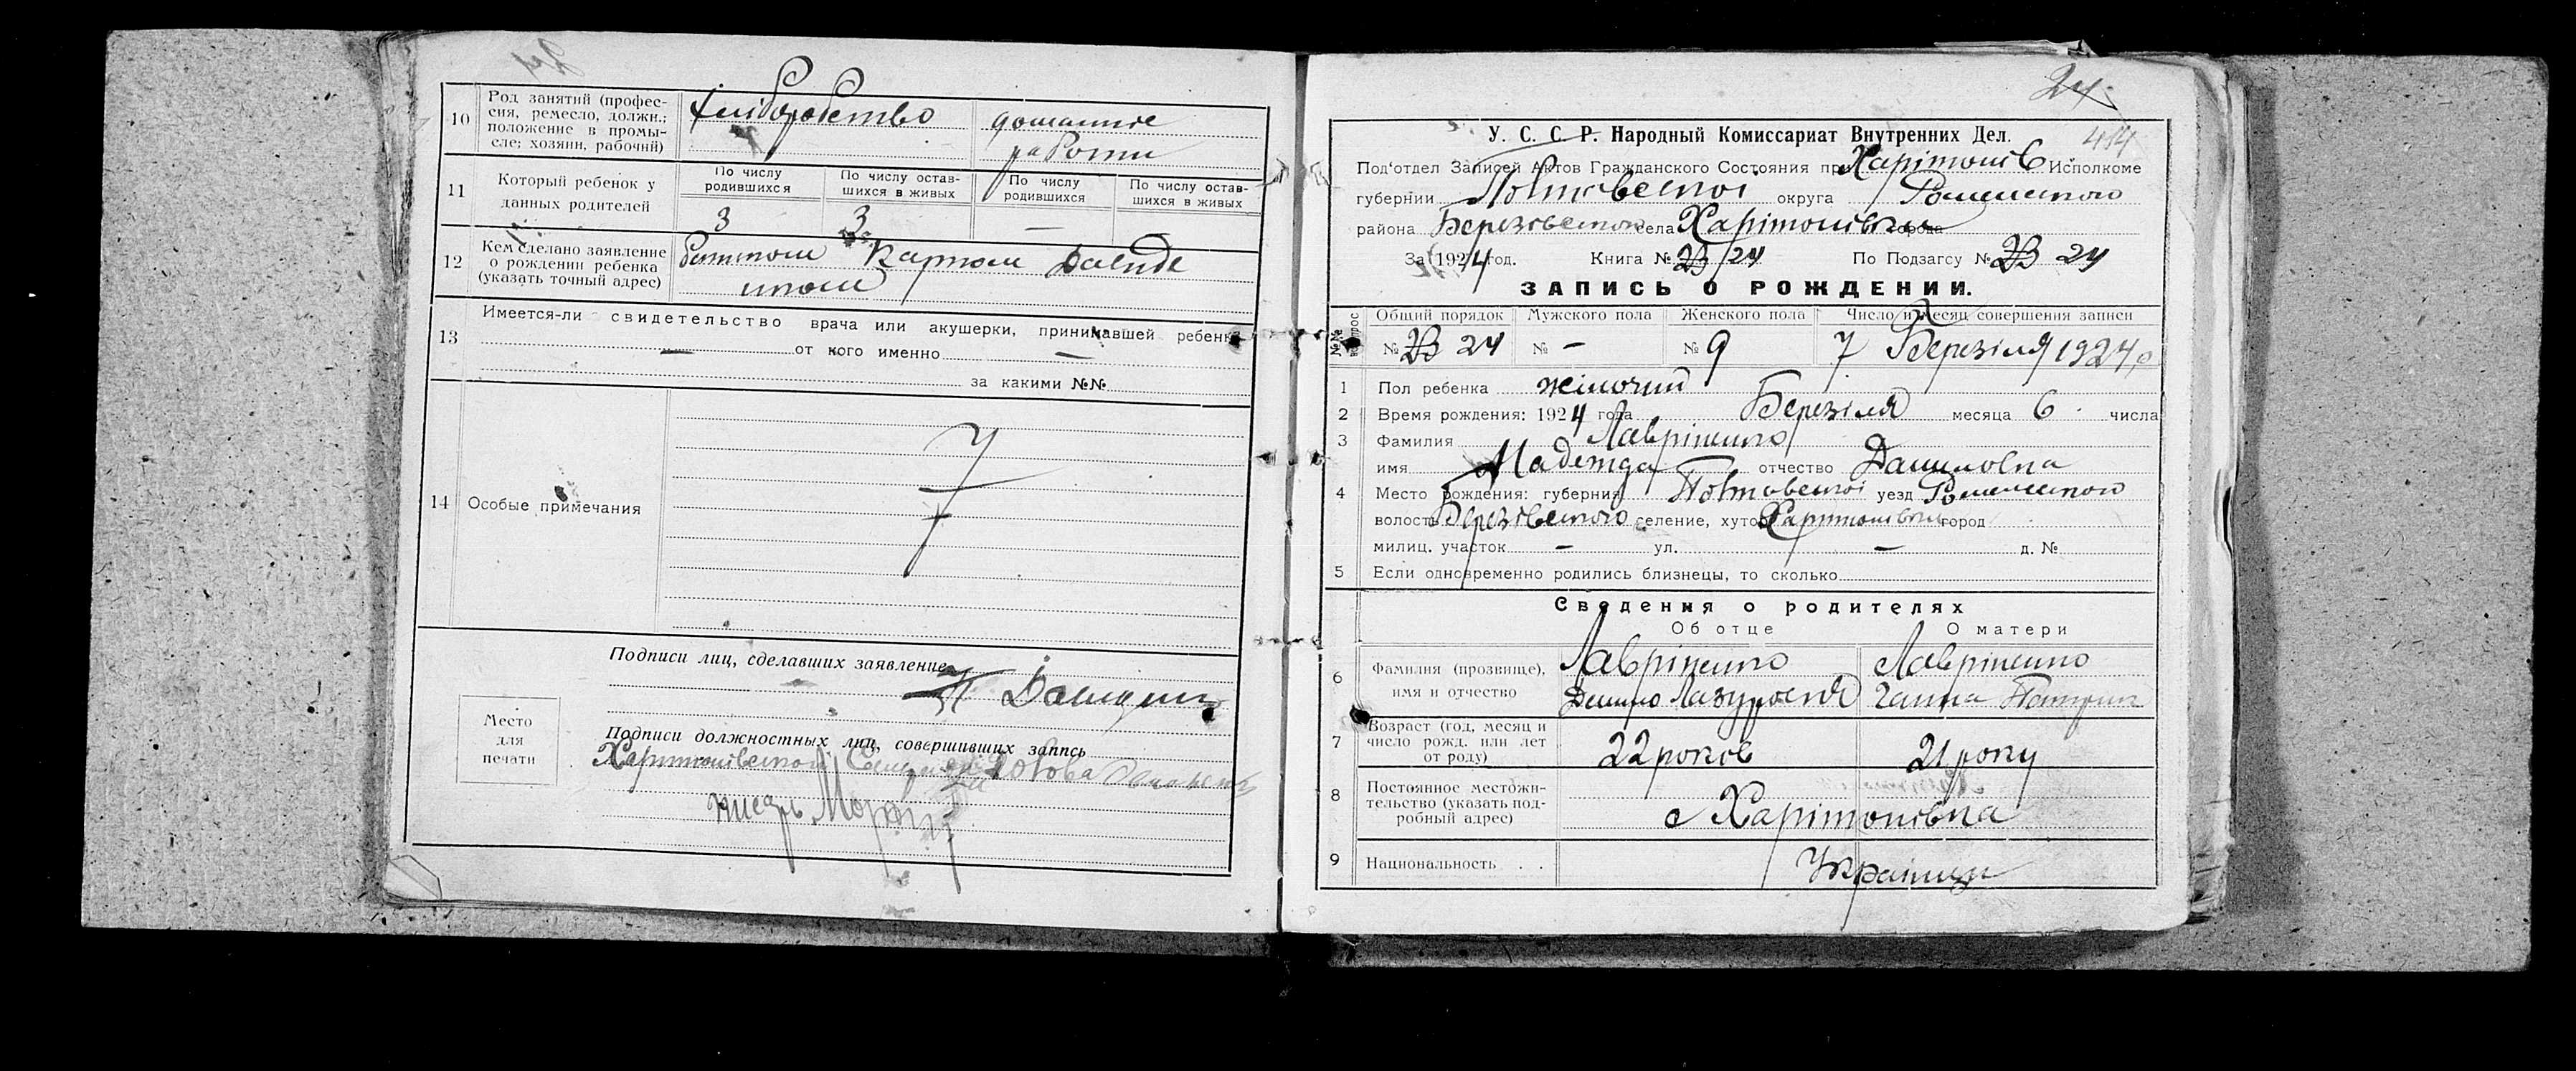 10 Род занятий (профес-
сия, ремесло, должн.;
положение в промы-
сле; хозяин, рабочий)
хліборобство
домашнє
работи
11 Который ребенок у
данных родителей
По числу
родившихся
По числу остав-
шихся в живых
По числу
родившихся
По числу остав-
шихся в живых
3 3 — 
12 Кем сделано заявление
о рождении ребенка
(указать точный адрес)
Карпом
13 Имеется-ли свидетельство врача или акушерки, принимавшей ребенка
— от кого именно —
за какими №№
14 Особые примечания
Подписи лиц, сделавших заявление
Место
для
печати
Подписи должностных лиц, совершивших запись
Голова
24
414
У. С. С. Р. Народный Комиссариат Внутренних Дел.
Под'отдел Записей Актов Гражданского Состояния при Харітонів Исполкоме
губернии Полтавської округа Роменського
района Березівського села Харітонівки города
За 1924 год. Книга № 23/24 По Подзагсу № 23 24
ЗАПИСЬ О РОЖДЕНИИ.
№№ вопрос Общий порядок Мужского пола Женского пола Число и месяц совершения записи
№ 23 24 № — № 9 7 Березіля 1924 р
1 Пол ребенка жіночий
2 Время рождения: 1924 года Березіля месяца 6 числа
3 Фамилия Лавріненко
имя Надежда отчество Даниловна
4 Место рождения: губерния Полтавської уезд Роменського
волость Березівського селение, хутор Харитонівки город
милиц. участок — ул. — д. №
5 Если одновременно родились близнецы, то сколько
Сведения о родителях
Об отце О матери
6 Фамилия (прозвище),
имя и отчество
Лавріненко Лавріненко
Данило Ганна
7 Возраст (год, месяц и
число рожд. или лет
от роду)
22 років 21 року
8 Постоянное местожи-
тельство (указать под-
робный адрес)
с Харітонівка
9 Национальность . . Українци